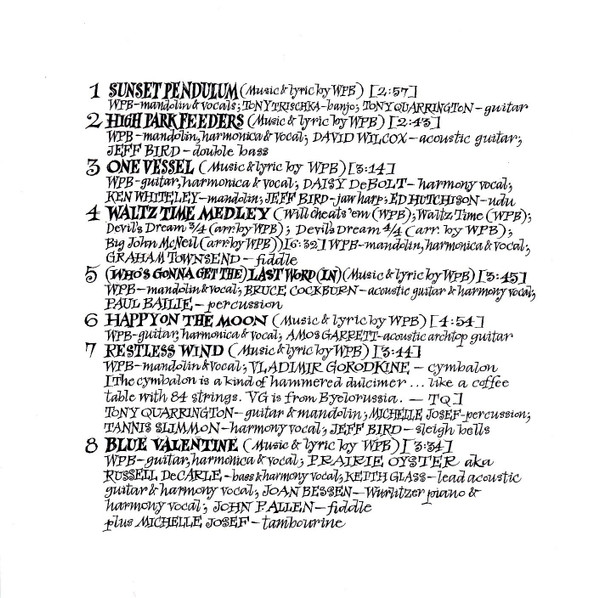 1 SUNSET PENDULUM (Music & lyric by WPB) [2:57]
WPB-mandolin & vocals; TONY TRISCHKA-banjo; TONY QUARRINGTON-guitar
2 HIGH PARK FEEDERS (Music & lyric by WPB) [2:43]
WPB-mandolin, harmonica & vocal; DAVID WILCOX-acoustic guitar;
JEFF BIRD-double bass
3 ONE VESSEL (Music & lyric by WPB) [3:14]
WPB-guitar, harmonica & vocal; DAISY DeBOLT-harmony vocal;
KEN WHITELEY-mandolin; JEFF BIRD-jaw harp; ED HUTCHISON-udu
4 WALTZ TIME MEDLEY (Will cheats 'em (WPB); Waltz Time (WPB);
Devil's Dream 3/4 (arr. by WPB); Devil's Dream 4/4 (arr. by WPB);
Big John McNeil (arr. by WPB)) [6:32] WPB-mandolin, harmonica & vocal;
GRAHAM TOWNSEND-fiddle
5 (WHO'S GONNA GET THE) LAST WORD (IN) (Music & lyric by WPB) [3:45]
WPB-mandolin & vocal; BRUCE COCKBURN-acoustic guitar & harmony vocal;
PAUL BAILIE-percussion
6 HAPPY ON THE MOON (Music & lyric by WPB) [4:54]
WPB-guitar, harmonica & vocal; AMOS GARRETT-acoustic archtop guitar
7 RESTLESS WIND (Music & lyric by WPB) [3:44]
WPB-mandolin & vocal; VLADIMIR GORODKINE - cymbalon
[The cymbalon is a kind of hammered dulcimer ... like a coffee
table with 84 strings. VG is from Byelorussia. - TQ]
TONY QUARRINGTON-guitar & mandolin; MICHELLE JOSEF-percussion;
TANNIS SLIMMON-harmony vocal; JEFF BIRD-sleigh bells
8 BLUE VALENTINE (Music & lyric by WPB) [3:34]
WPB-guitar, harmonica & vocal; PRAIRIE OYSTER aka
RUSSELL DeCARLE-bass & harmony vocal; KEITH GLASS-lead acoustic
guitar & harmony vocal; JOAN BESSEN-Wurlitzer piano &
harmony vocal; JOHN P. ALLEN-fiddle
plus MICHELLE JOSEF-tambourine